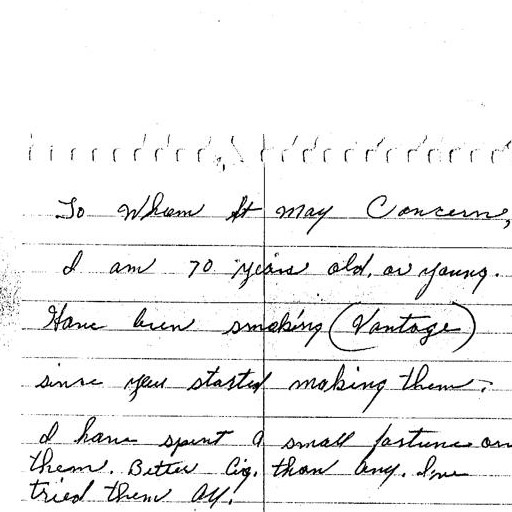 To Whom It May Concern,
I am 70 years old, or young.
Have been smoking (Vantage)
since you started making them.
I have spent a small fortune on
them. Better Cig. than any. I've
tried them All!